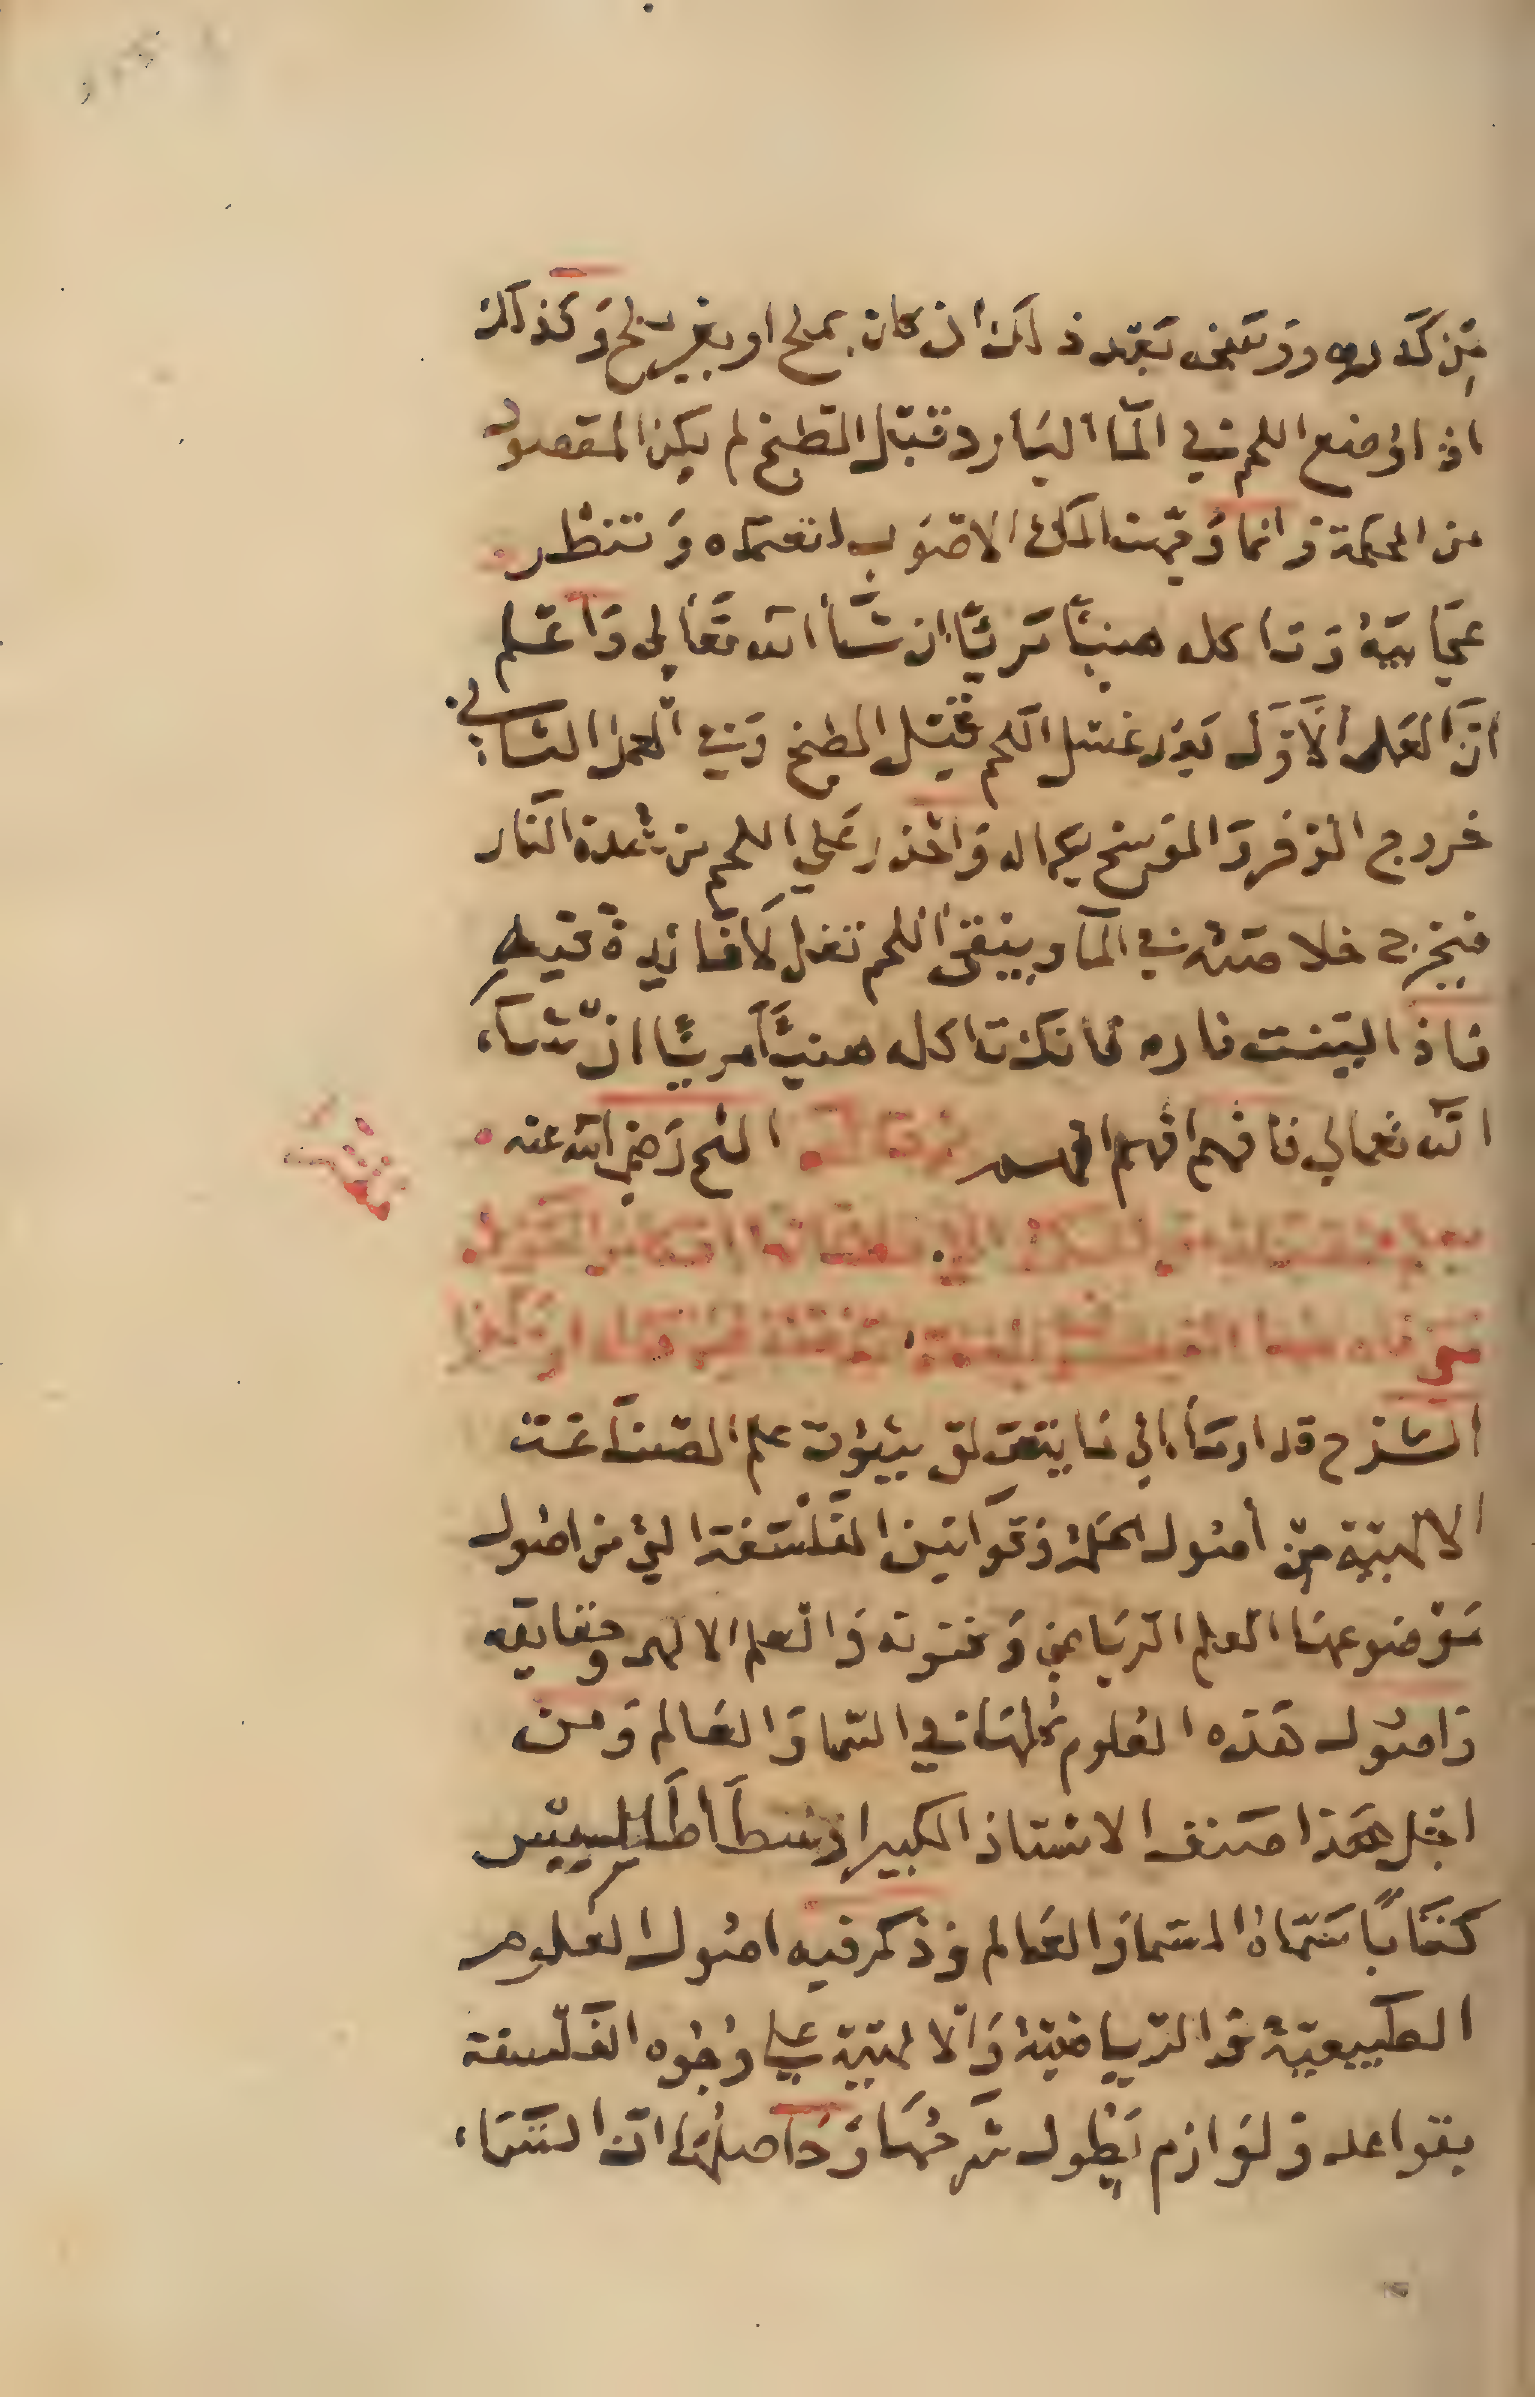 من كدره ووسخه بعد ذلك ان كان بملح او بغير ملح وكذلك
اذا وضع اللحم في المآ البارد قبل الطبخ لم يكن المقصود
من الحكمة وانما وقهت لك الاصوب لتعتمده وتنظر
عجايبه وتاكل هنيئًا مريئًا ان شآ الله تعالى واعلم
ان العمل الاول بعد غسل اللحم قبل الطبخ وفي العمل الثاني
خروج الزفر والوسخ بكماله واحذر على اللحم من شدة النار
فيخرج خلاصته في المآ ويبقى اللحم تفل لا فايدة فيه
فاذا لينت ناره فانك تاكله هنيئًا مريئًا ان شآء
الله تعالي فافهم افهم افهم قال الشيخ رضي الله عنه
الشرح قد اومأ الي ما يتعلق بثبوت علم الصناعت
الالهية من أصول الحكمة وقوانين الفلسفة التي من اصول
موضوعها العلم الرياضي وفنونه والعلم الالهي وحقايقه
واصول هذه العلوم كلها في السما والعالم ومن
اجل هذا صنف الاستاذ الكبير ارسطاطاليس
كتابًا سماه السما والعالم وذكر فيه اصول العلوم
الطبيعية والرياضية والالهية علي وجوه الفلسفة
بقواعد ولوازم يطول شرحها وحاصلها ان السماء